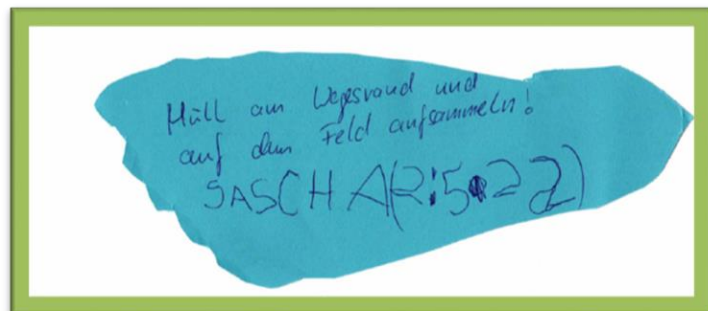 Müll am Wegesrand und
auf dem Feld aufsammeln!
SASCHA(2:5.22)